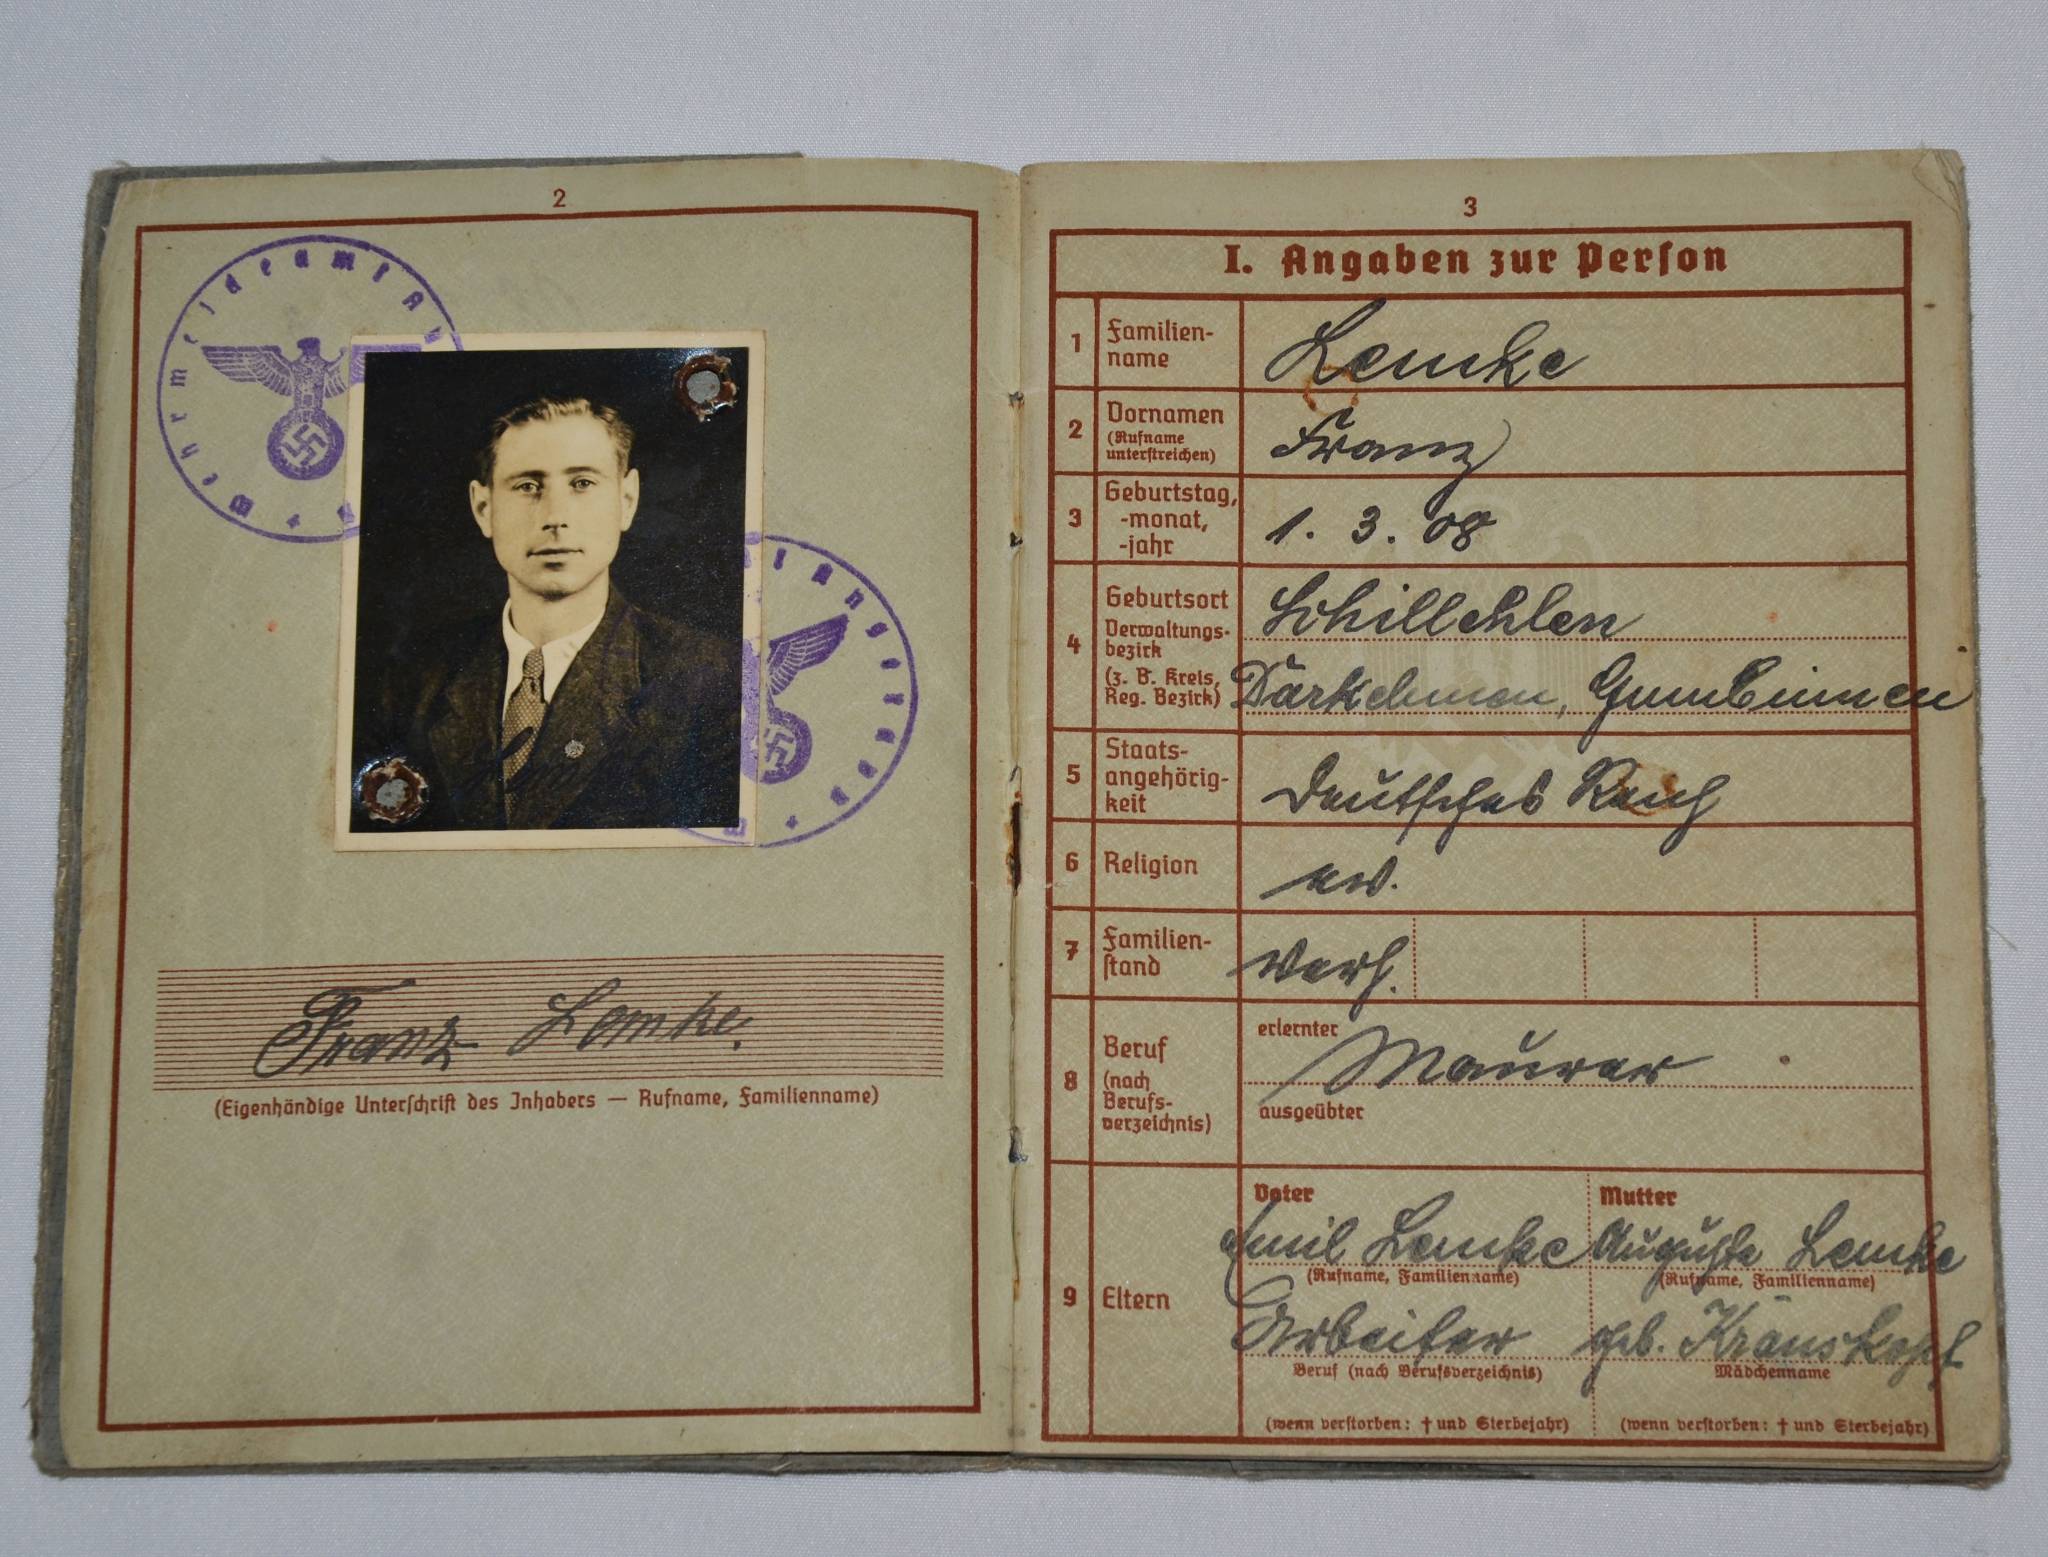 2
Wehrmeldeamt Angerapp
Angerapp
Franz Lemke.
(Eigenhändige Unterschrift des Inhabers — Rufname, Familienname)
3
I. Angaben zur Person
1 Familien-
name
Lemke
2 Vornamen
(Rufname
unterstreichen)
Franz
3 Geburtstag,
-monat,
-jahr
1. 3. 08
4 Geburtsort
Verwaltungs-
bezirk
(z. B. Kreis,
Reg. Bezirk)
Schillehlen
Darkehmen, Gumbinnen
5 Staats-
angehörig-
keit
Deutsches Reich
6 Religion
ev.
7 Familien-
stand
verh.
8 Beruf
(nach
Berufs-
verzeichnis)
erlernter
Maurer
ausgeübter
9 Eltern
Vater
Emil Lemke
(Rufname, Familienname)
Arbeiter
Beruf (nach Berufsverzeichnis)
(wenn verstorben: † und Sterbejahr)
Mutter
Auguste Lemke
(Rufname, Familienname)
geb.
Mädchenname
(wenn verstorben: † und Sterbejahr)